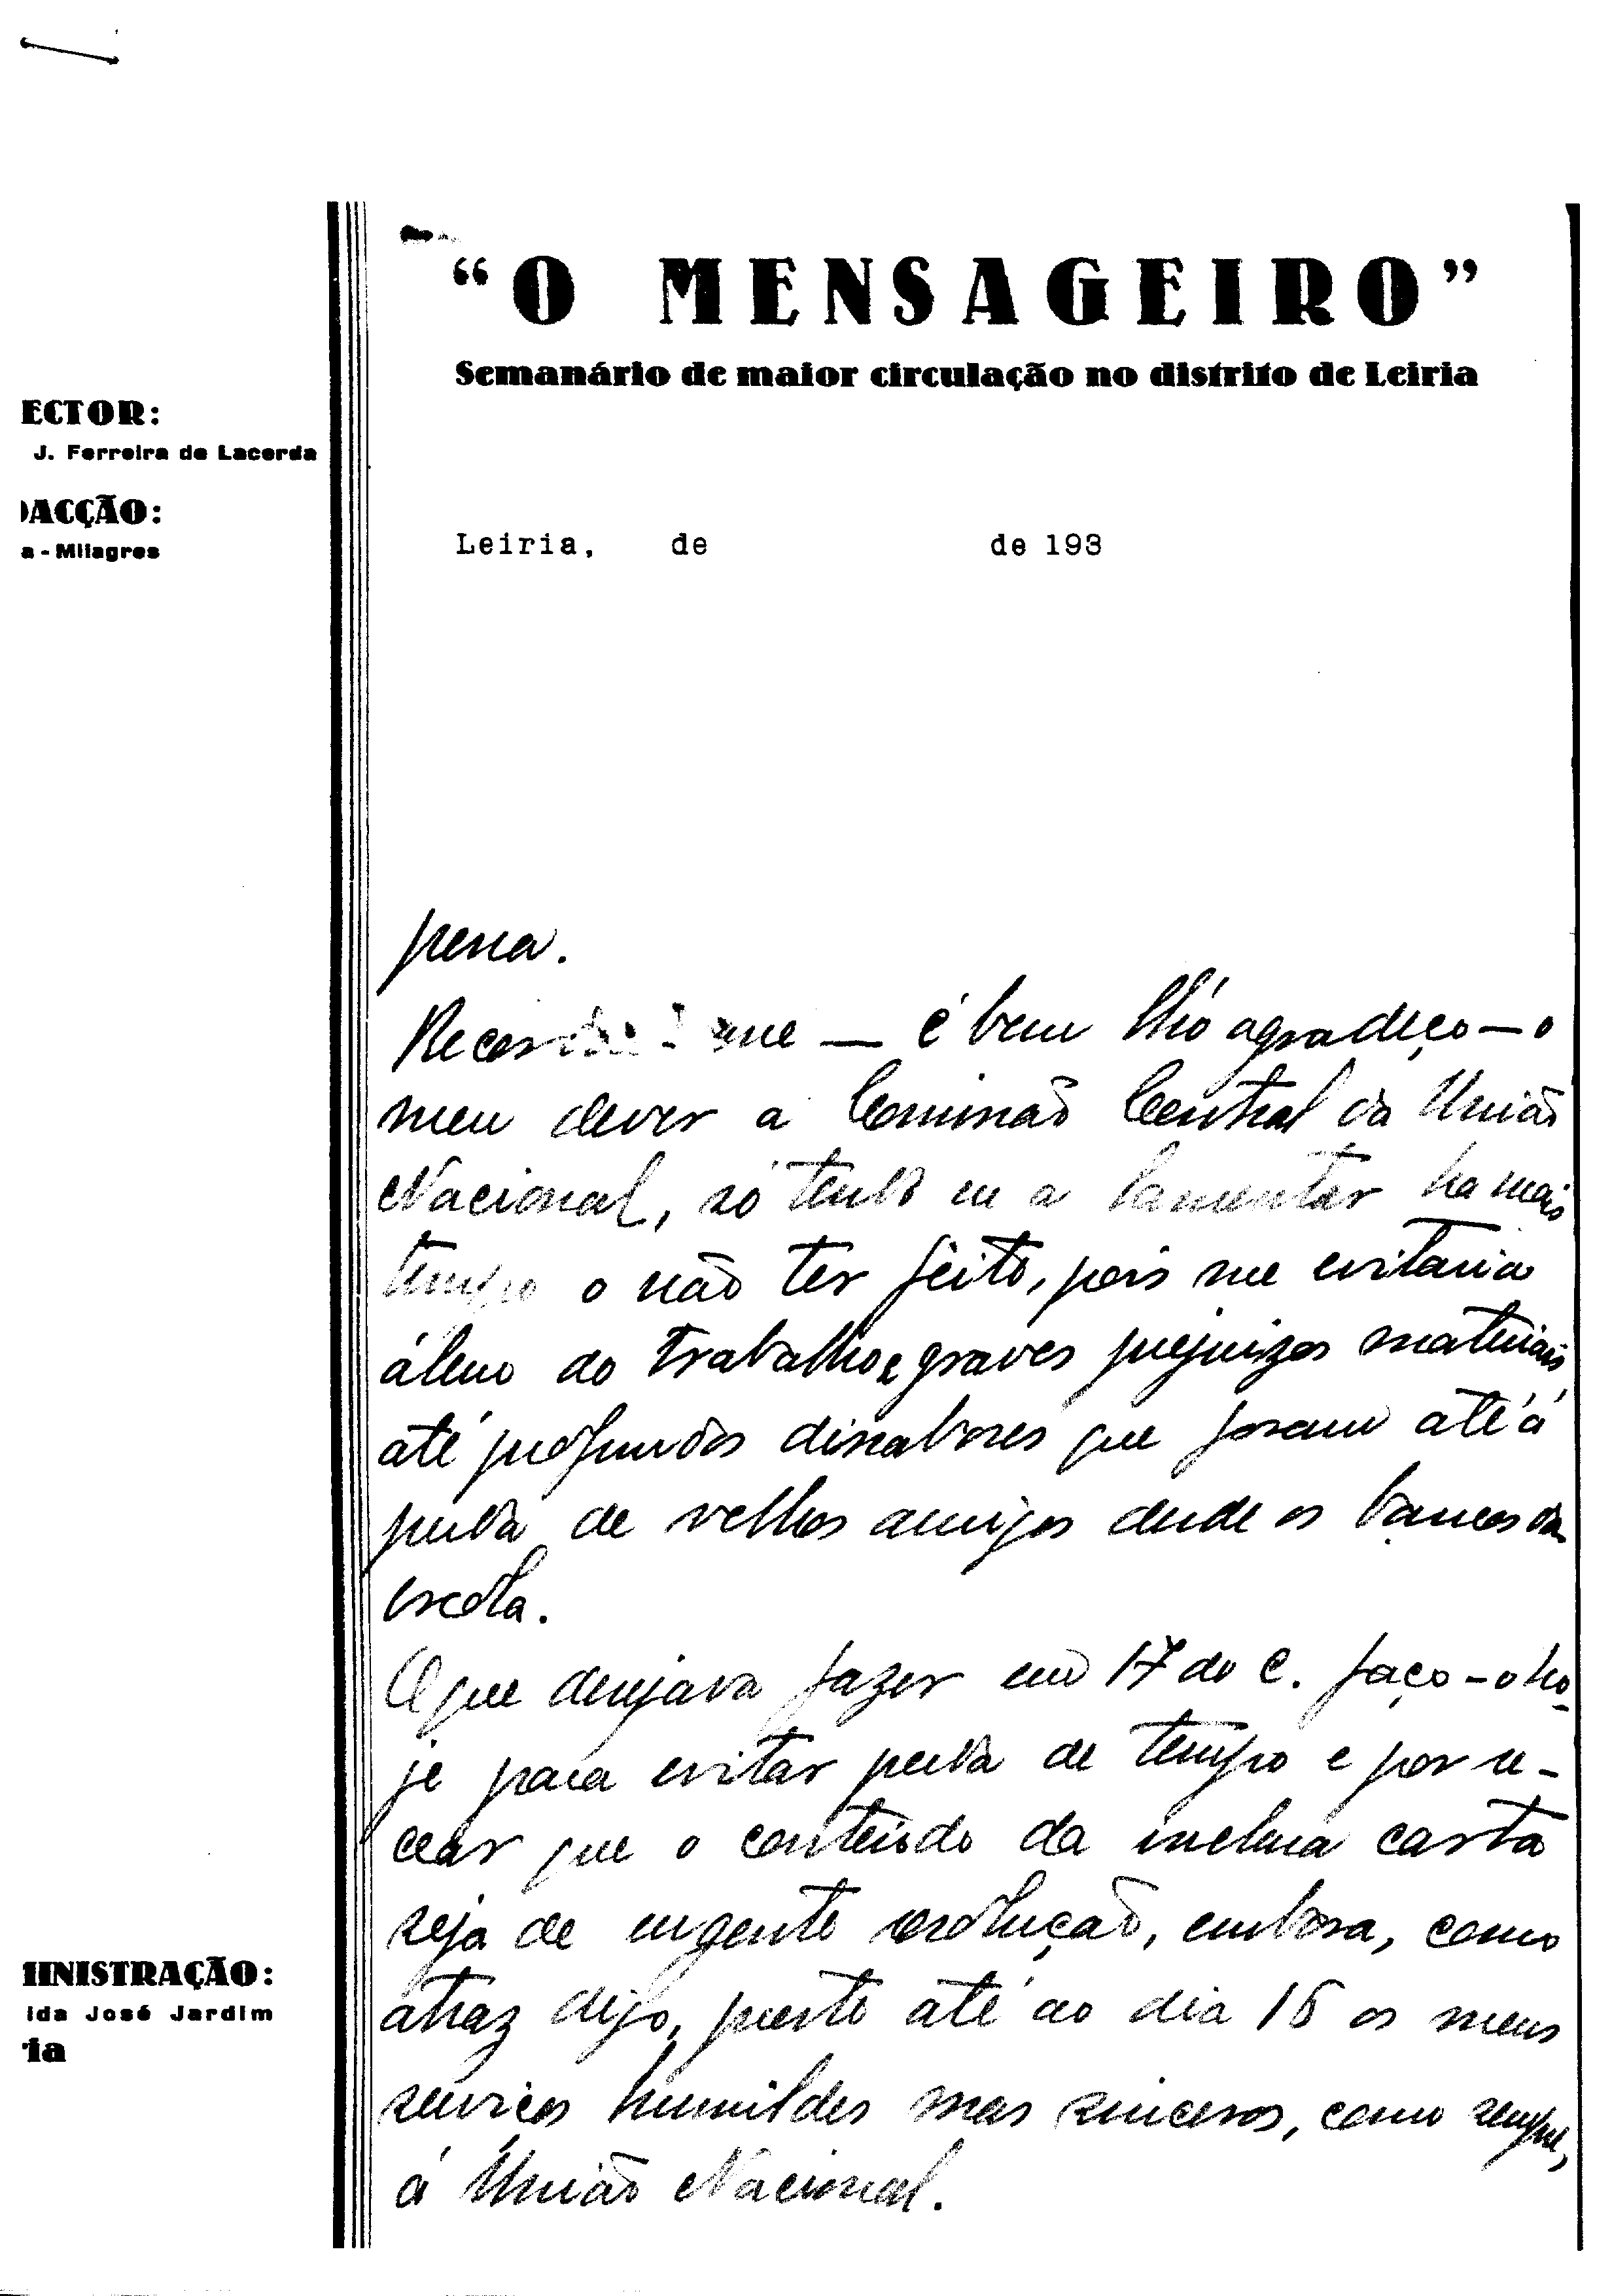 "O MENSAGEIRO"
Semanário de maior circulação no distrito de Leiria
ECTOR:
J. Ferreira de Lacerda
DACÇÃO:
a - Milagres
Leiria, de de 193
pena.
me — e bem lho agradeço — o
meu dever a Comissão Central da União
Nacional, só tendo eu a lamentar ha mais
tempo o não ter feito, pois me evitaria
álem do trabalho e graves prejuizos materiais
até profundos dissabores que foram até á
perda de velhos amigos desde os bancos da
escola.
O que desejava fazer em 17 do c. faço-o ho-
je para evitar perda de tempo e por re-
cear que o conteúdo da inclusa carta
seja de urgente resolução, embora, como
atraz digo, preste até ao dia 15 os meus
serviços humildes mas sinceros, como sempre,
á União Nacional.
IINISTRAÇÃO:
ida José Jardim
ria